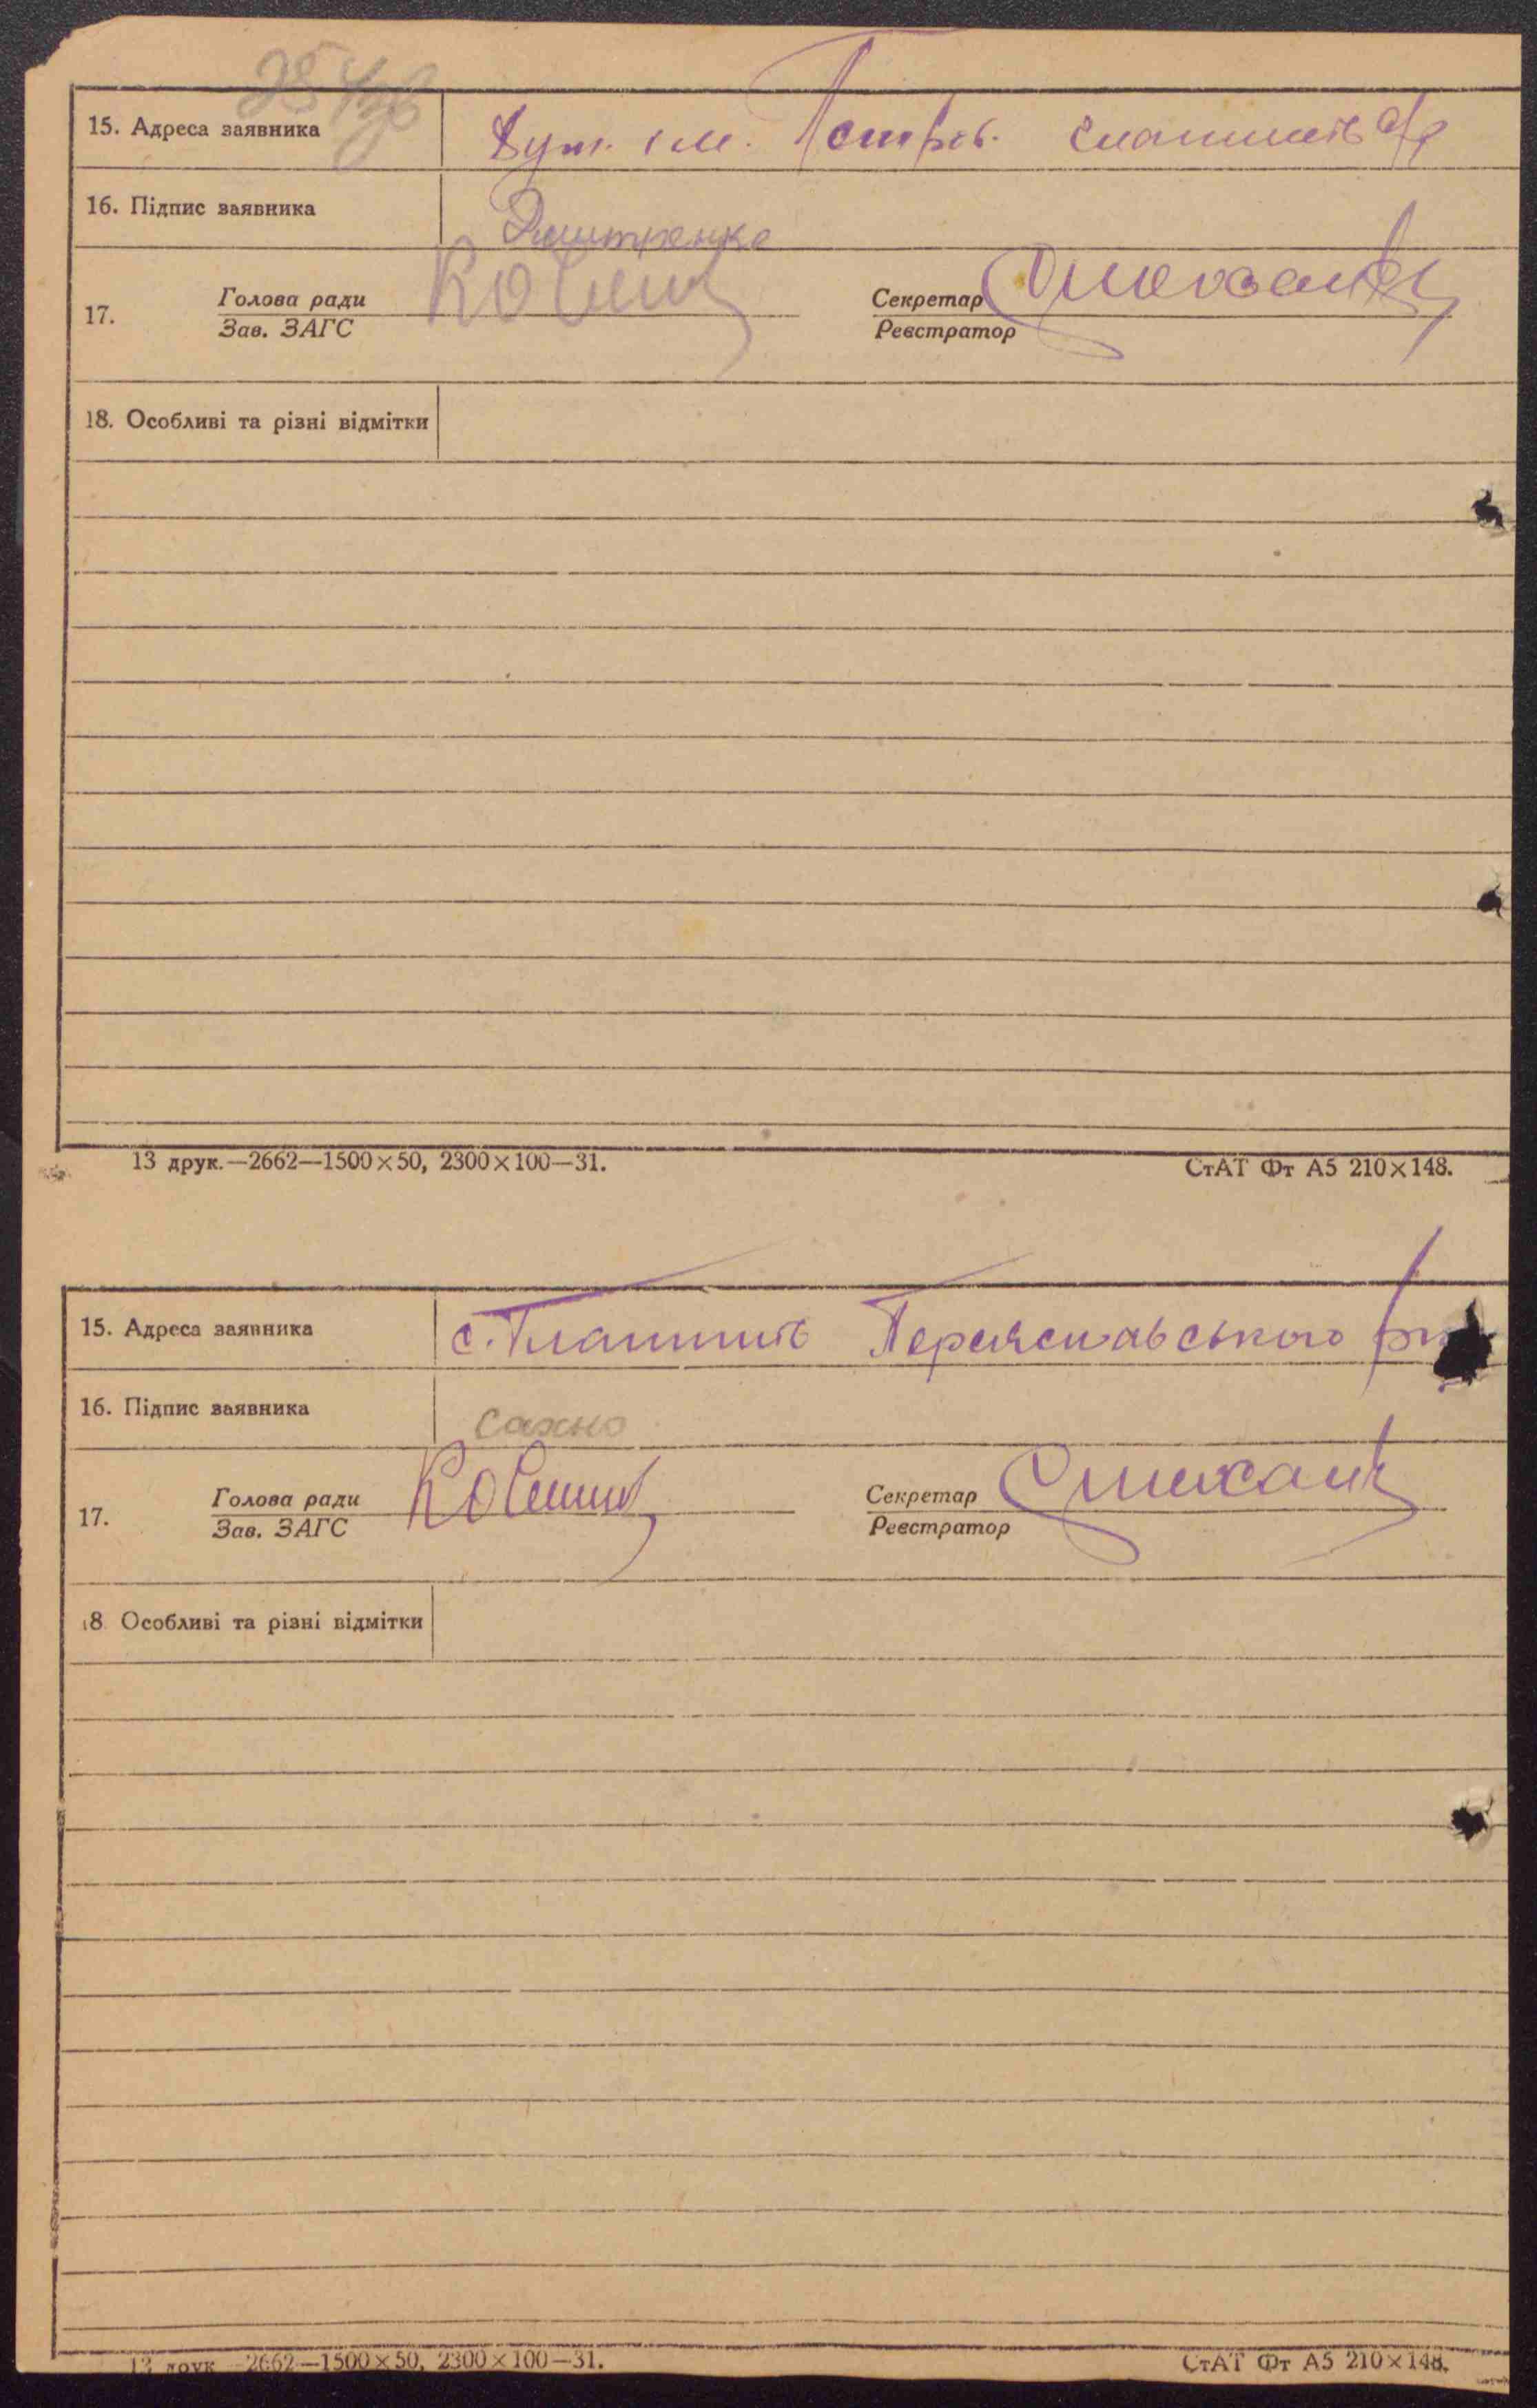 15. Адреса заявника Хут. ім. Петров.
16. Підпис заявника Дмитренко
17. Голова ради
Зав. ЗАГС
Секретар
Реєстратор
18. Особливі та різні відмітки
13 друк.—2662—1500×50, 2300×100—31. СтАТ Фт А5 210×148.
15. Адреса заявника с. Гланишів Переяславського
16. Підпис заявника Сахно
17. Голова ради
Зав. ЗАГС
Секретар
Реєстратор
18 Особливі та різні відмітки
13 друк —2662—1500×50, 2300×100—31. СтАТ Фт А5 210×148.